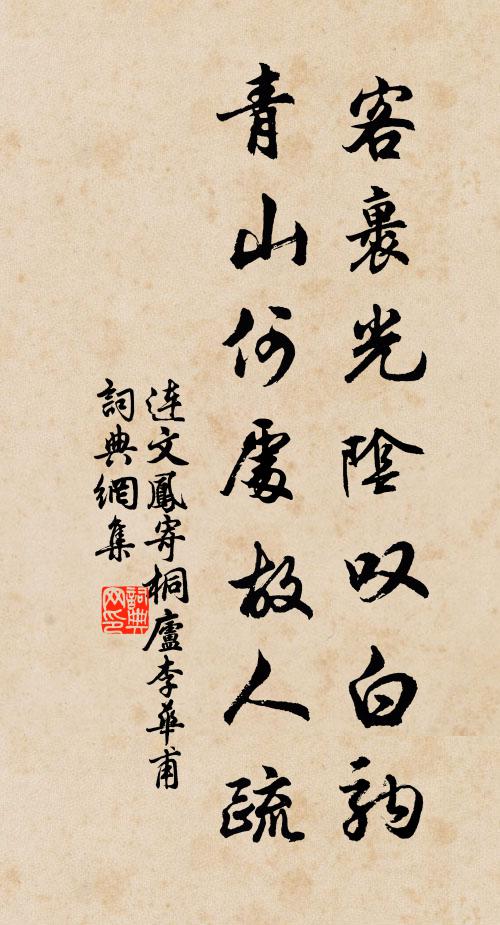 客裏光陰叹白駒
青山何處故人疏
連文鳳寄桐廬李華甫
詞典網集
詞典网印